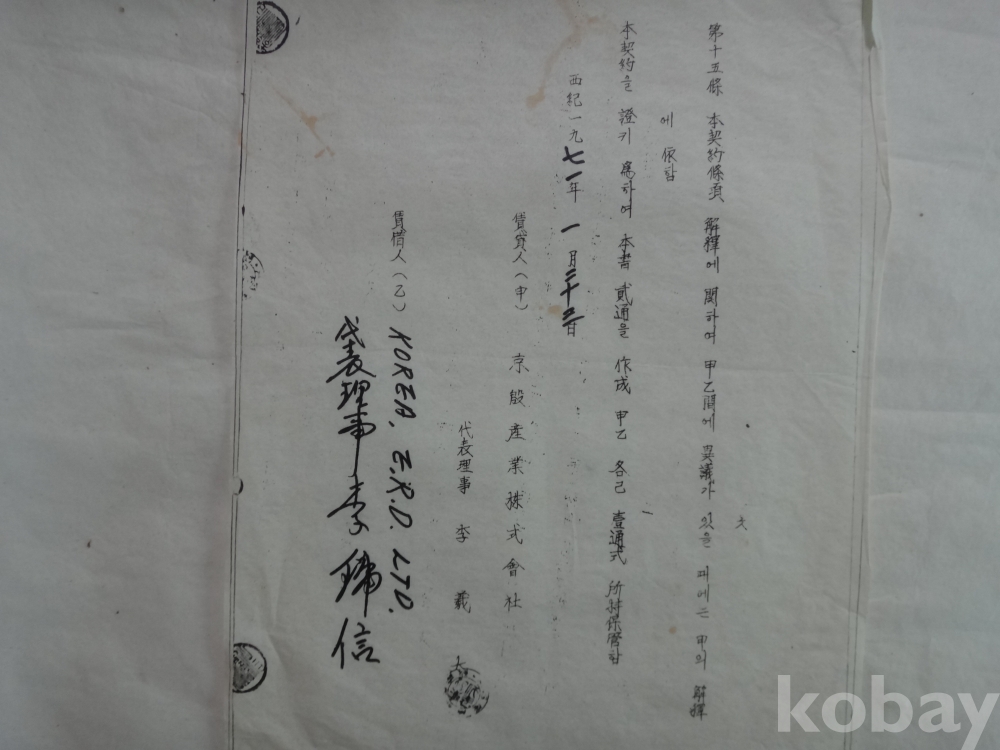 第十五條 本契約條項 解釋에 関하여 甲乙間에 異議가 있을 때에는 甲의 解釋
에 依함
本契約을 證키 爲하여 本書 貳通을 作成 甲乙 各己 壹通式 所持保管함
西紀一九七一年 一月二十三日
賃貸人(甲) 京殷産業株式會社
代表理事 李 載
賃借人(乙) KOREA, E.R.D. LTD.
代表理事 李 信
kobay